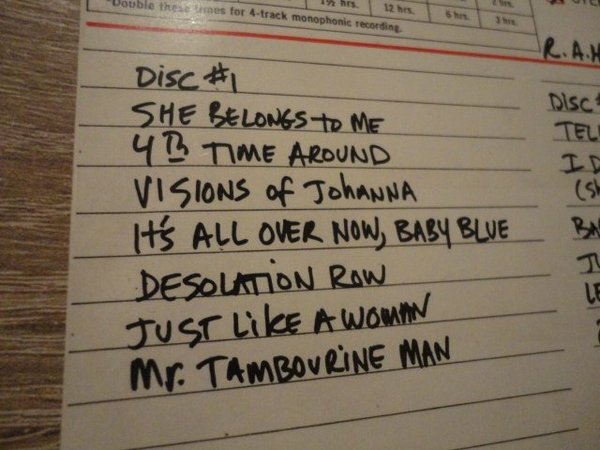 "Double these times for 4-track monophonic recording.
1½ hrs.
12 hrs.
6 hrs.
3 hrs.
DISC #1
SHE BELONGS to ME
4TH TIME AROUND
VISIONS of JOHANNA
It's ALL OVER NOW, BABY BLUE
DESOLATION ROW
JUST LIKE A WOMAN
Mr. TAMBOURINE MAN
R.A.H
DISC
TELL
I D
(SH
BA
JU
LE